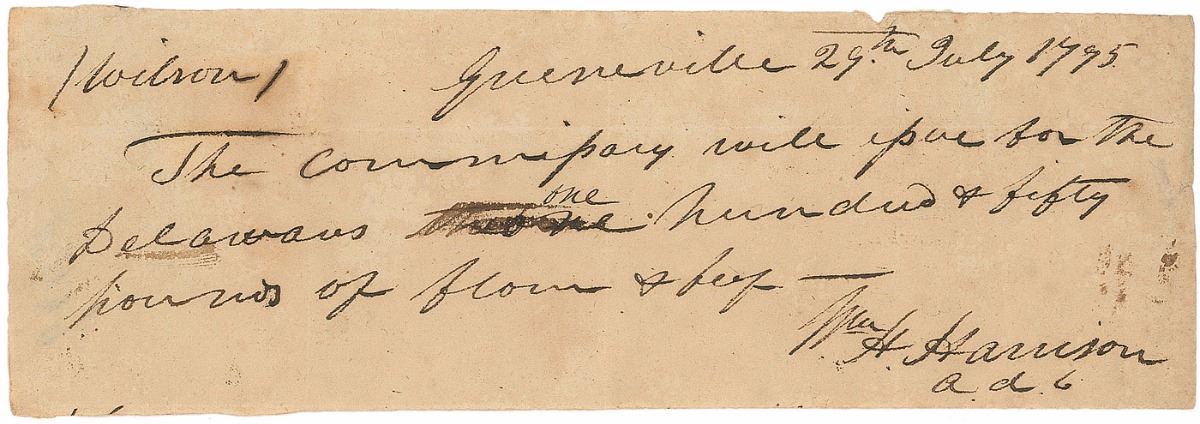 (Wilson) Greeneville 29th July 1795
The Commissary will issue for the
Delawares one hundred & fifty
pounds of flour & beef —
Wm H. Harrison
a d c